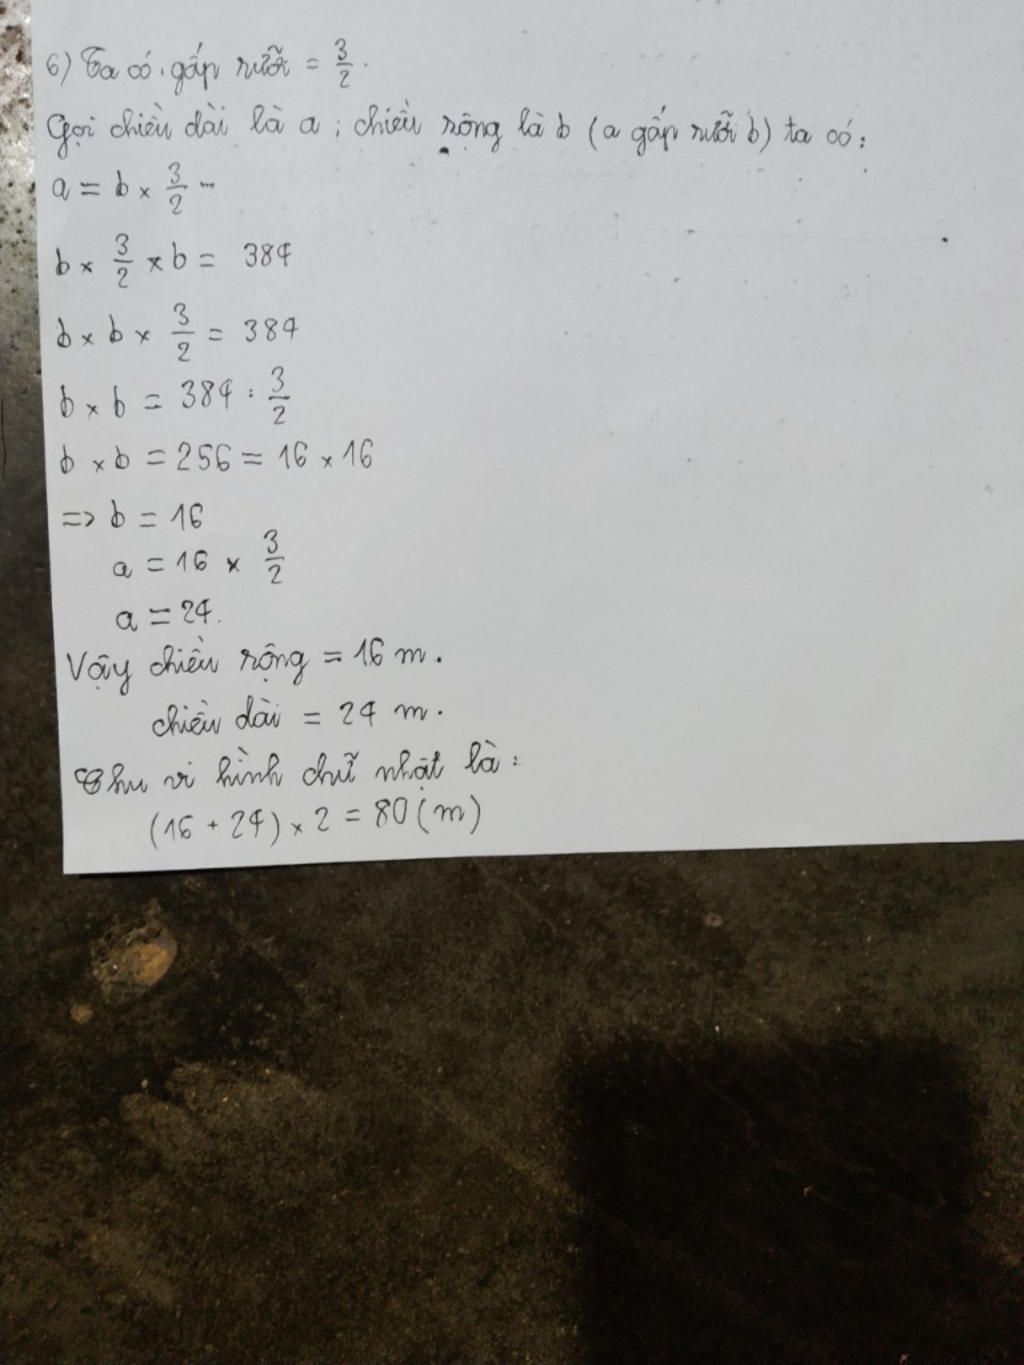 6) Ta có: gấp rưỡi = 3/2.
Gọi chiều dài là a; chiều rộng là b (a gấp rưỡi b) ta có:
a = b × 3/2 ...
b × 3/2 × b = 384
b × b × 3/2 = 384
b × b = 384 : 3/2
b × b = 256 = 16 × 16
=> b = 16
a = 16 × 3/2
a = 24.
Vậy chiều rộng = 16 m.
chiều dài = 24 m.
Chu vi hình chữ nhật là:
(16 + 24) × 2 = 80 (m)